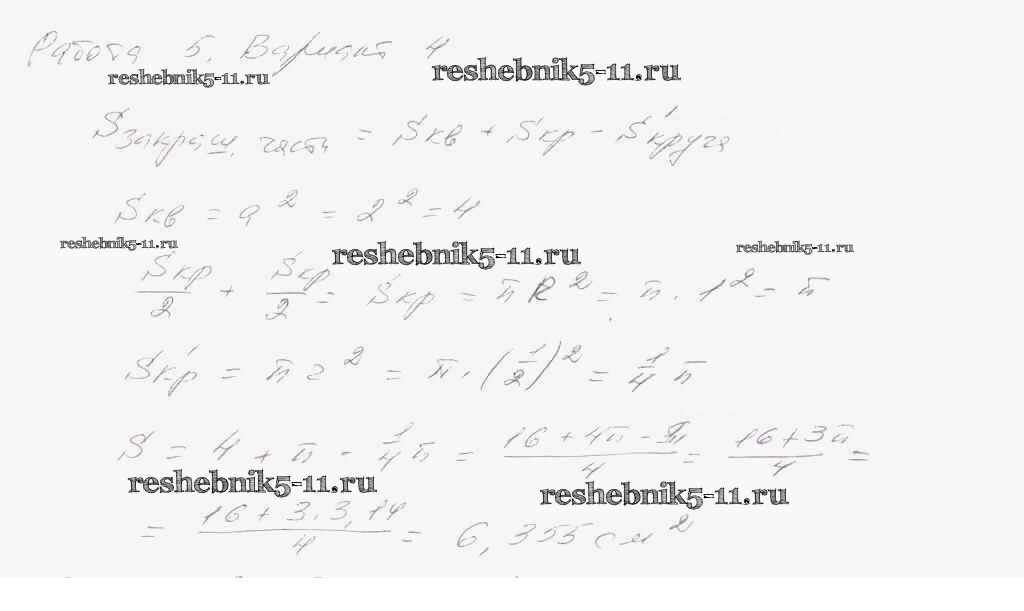 Работа 5. Вариант 4
reshebnik5-11.ru reshebnik5-11.ru
Sзакраш. части = Sкв + Sкр - S'круга
Sкв = a² = 2² = 4
reshebnik5-11.ru reshebnik5-11.ru reshebnik5-11.ru
Sкр/2 + Sкр/2 = Sкр = πR² = π · 1² = π
S'кр = πr² = π · (1/2)² = 1/4 π
S = 4 + π - 1/4 π = (16 + 4π - π)/4 = (16 + 3π)/4 =
reshebnik5-11.ru reshebnik5-11.ru
= (16 + 3 · 3,14)/4 = 6,355 см²